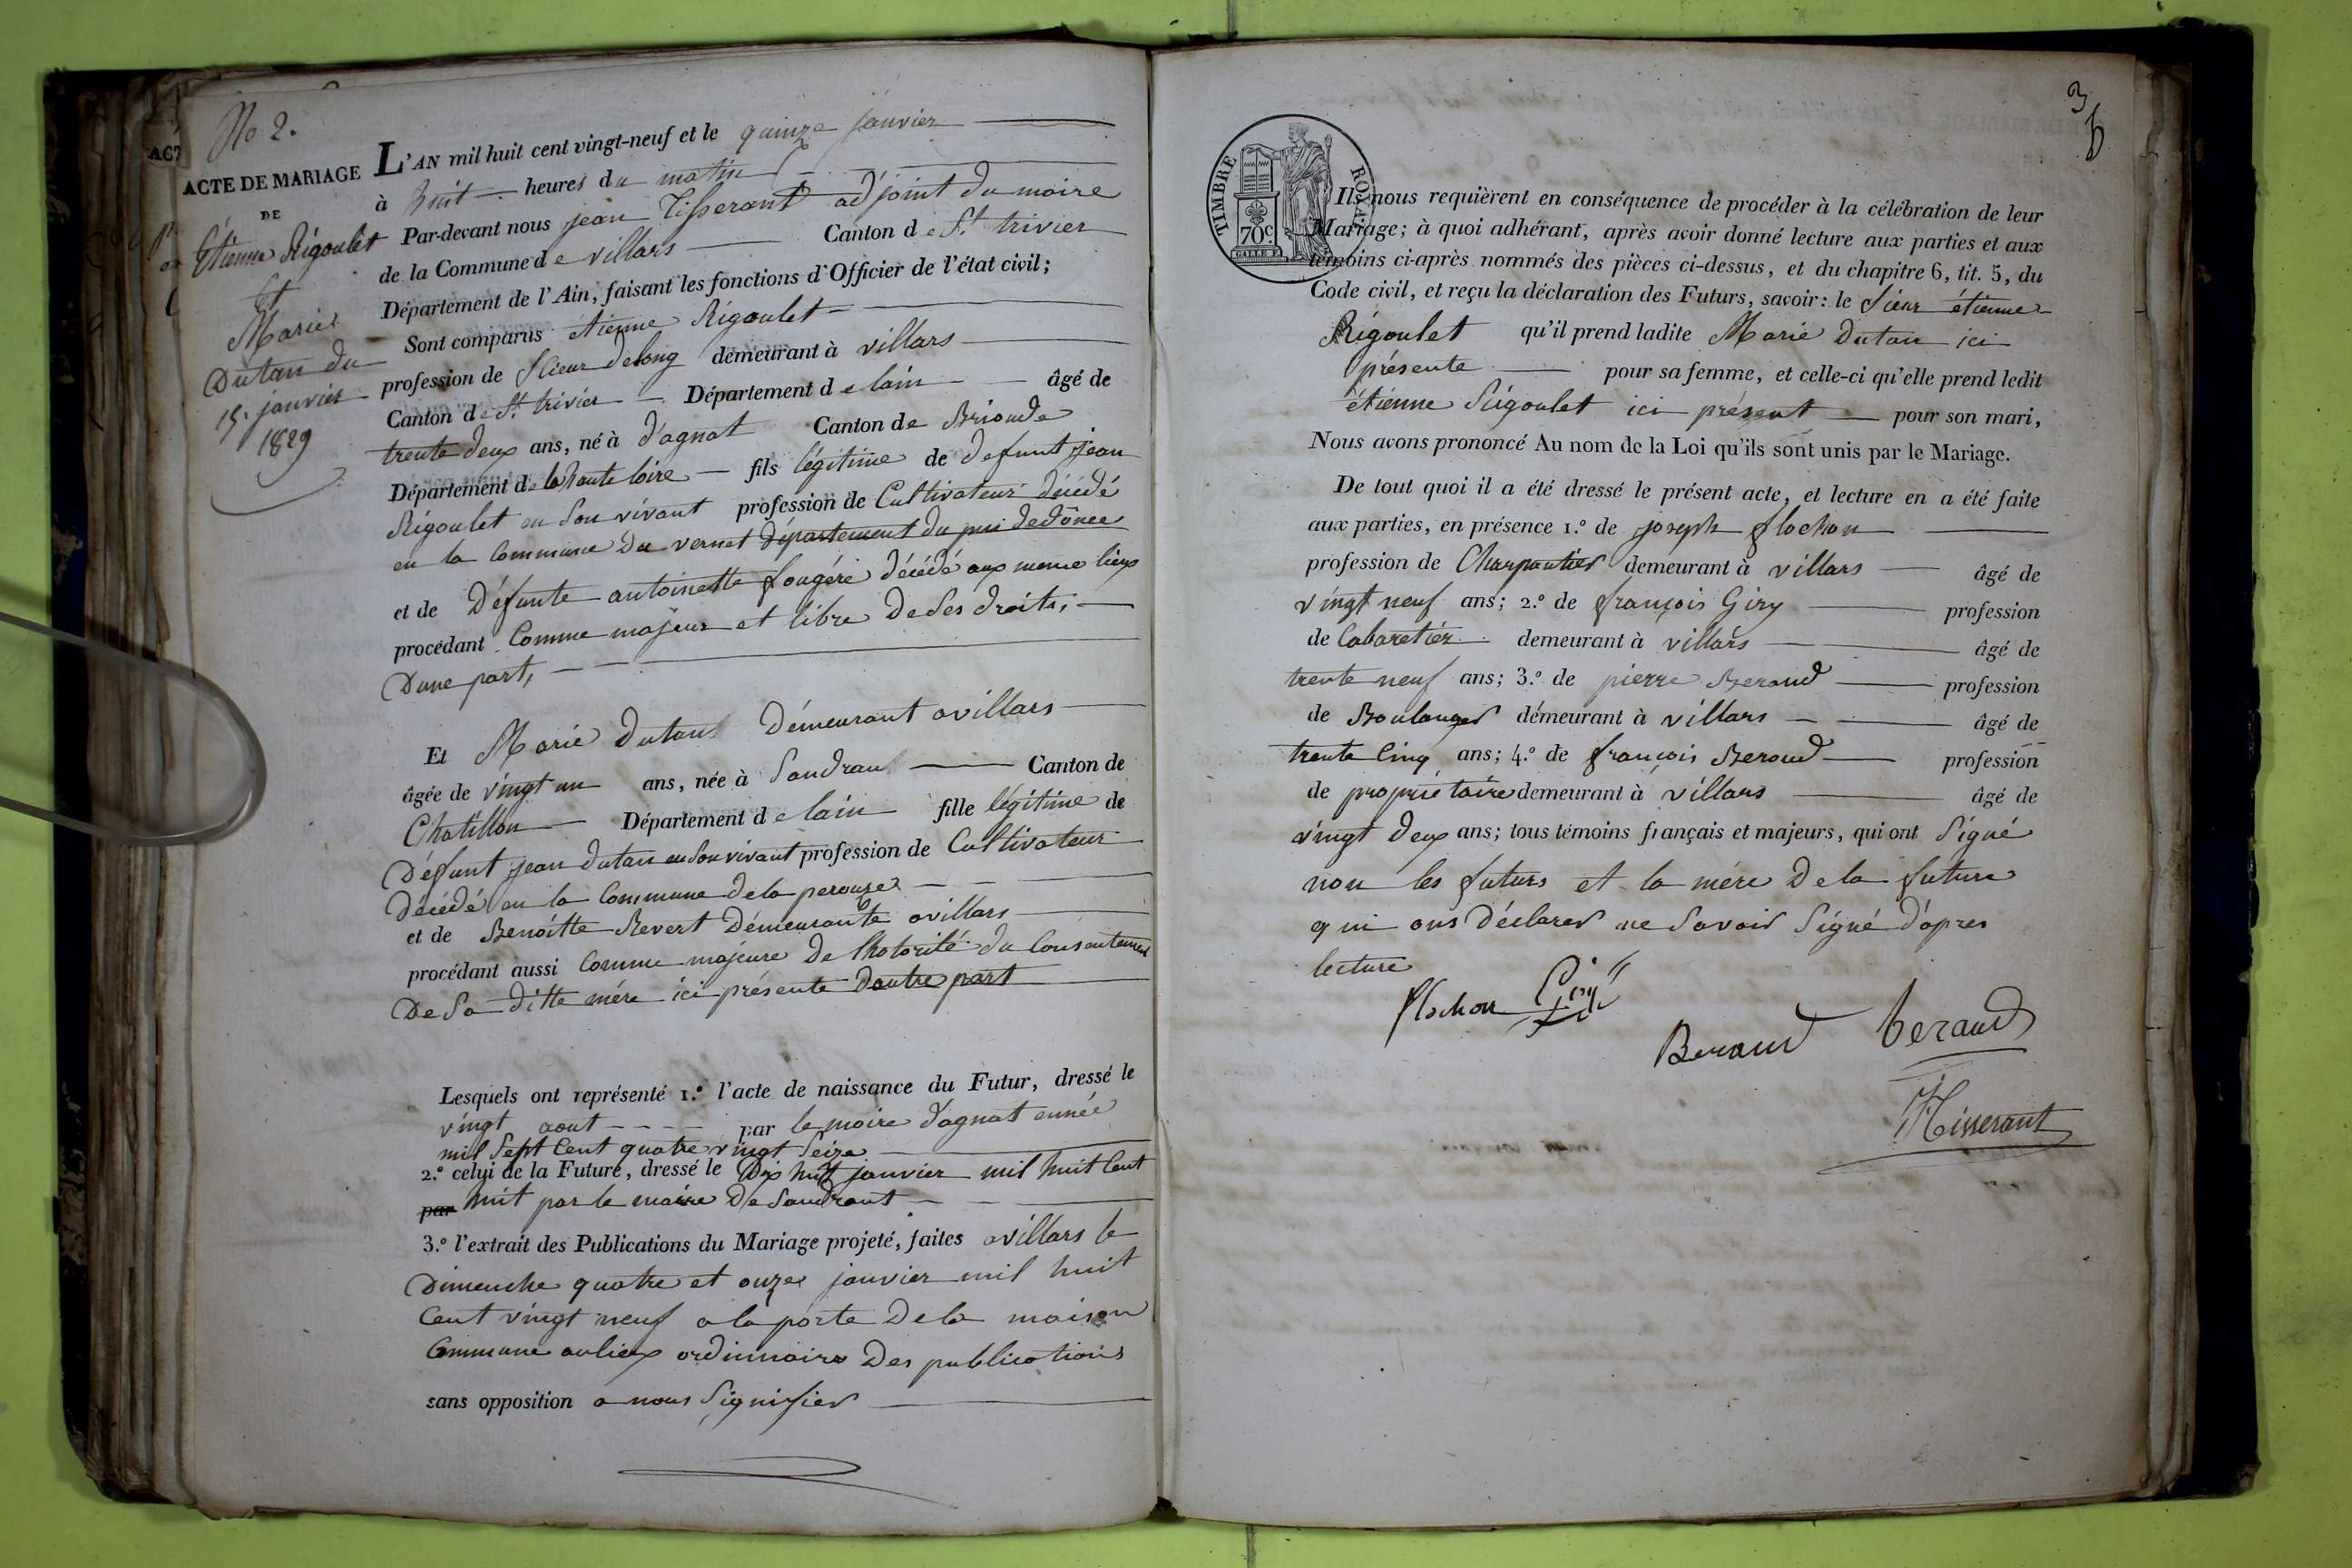 No 2.
ACTE DE MARIAGE
DE
Étienne Rigoulet
Et
Marie
Dutan du
15. janvier
1829
L'AN mil huit cent vingt-neuf et le quinze janvier
à huit heures du matin
Par-devant nous jean Tisserant adjoint du maire
de la Commune de villars Canton de St. trivier
Département de l'Ain, faisant les fonctions d'Officier de l'état civil;
Sont comparus étienne Rigoulet
profession de Scieur delong demeurant à villars
Canton de St. trivier Département de lain âgé de
trente deux ans, né à d'agnat Canton de Brioude
Département de la haute loire fils légitime de defunt jean
Rigoulet en Son vivant profession de Cultivateur décédé
en la Commune du vernet département du pui dedônee
et de Défunte antoinette fougére décédé aux meme lieux
procédant Comme majeur et libre De Ses droits,
Dune part,
Et Marie Dutan Démeurant avillars
âgée de vingt un ans, née à Sandran Canton de
Chatillon Département de lain fille légitime de
Défunt jean dutan en Son vivant profession de Cultivateur
Décédé en la Commune dela perouze
et de Benoitte Revert Démeurante avillars
procédant aussi Comme majeure de lhotorité du Consentement
De Sa ditte mére ici présente Dautre part
Lesquels ont représenté 1.° l'acte de naissance du Futur, dressé le
vingt aout par le maire d'agnat année
mil Sept Cent quatre vingt Seize
2.° celui de la Future, dressé le Dix huit janvier mil huit Cent
par huit par le maire De Sandrant
3.° l'extrait des Publications du Mariage projeté, faites avillars le
Dimenche quatre et onze janvier mil huit
Cent vingt neuf a la porte De la maison
Commune aulieux ordinnaire Des publications
sans opposition a nous Signifier
3
TIMBRE ROYAL
70c.
Ils nous requièrent en conséquence de procéder à la célébration de leur
Mariage; à quoi adhérant, après avoir donné lecture aux parties et aux
témoins ci-après nommés des pièces ci-dessus, et du chapitre 6, tit. 5, du
Code civil, et reçu la déclaration des Futurs, savoir: le Sieur étienne
Rigoulet qu'il prend ladite Marie Dutan ici
présente pour sa femme, et celle-ci qu'elle prend ledit
étienne Rigoulet ici présent pour son mari,
Nous avons prononcé Au nom de la Loi qu'ils sont unis par le Mariage.
De tout quoi il a été dressé le présent acte, et lecture en a été faite
aux parties, en présence 1.° de joseph flochon
profession de Charpantier demeurant à villars âgé de
vingt neuf ans; 2.° de françois Giry profession
de Cabaretiér demeurant à villars âgé de
trente neuf ans; 3.° de pierre Beraud profession
de Boulanger démeurant à villars âgé de
trente Cinq ans; 4.° de françois Beraud profession
de propriétaire demeurant à villars âgé de
vingt Deux ans; tous témoins français et majeurs, qui ont Signé
non les futurs et la mére De la future
qui ons Déclarer ne Savoir Signé d'apres
lecture
flochon Giry
Beraud beraud
Tisserant